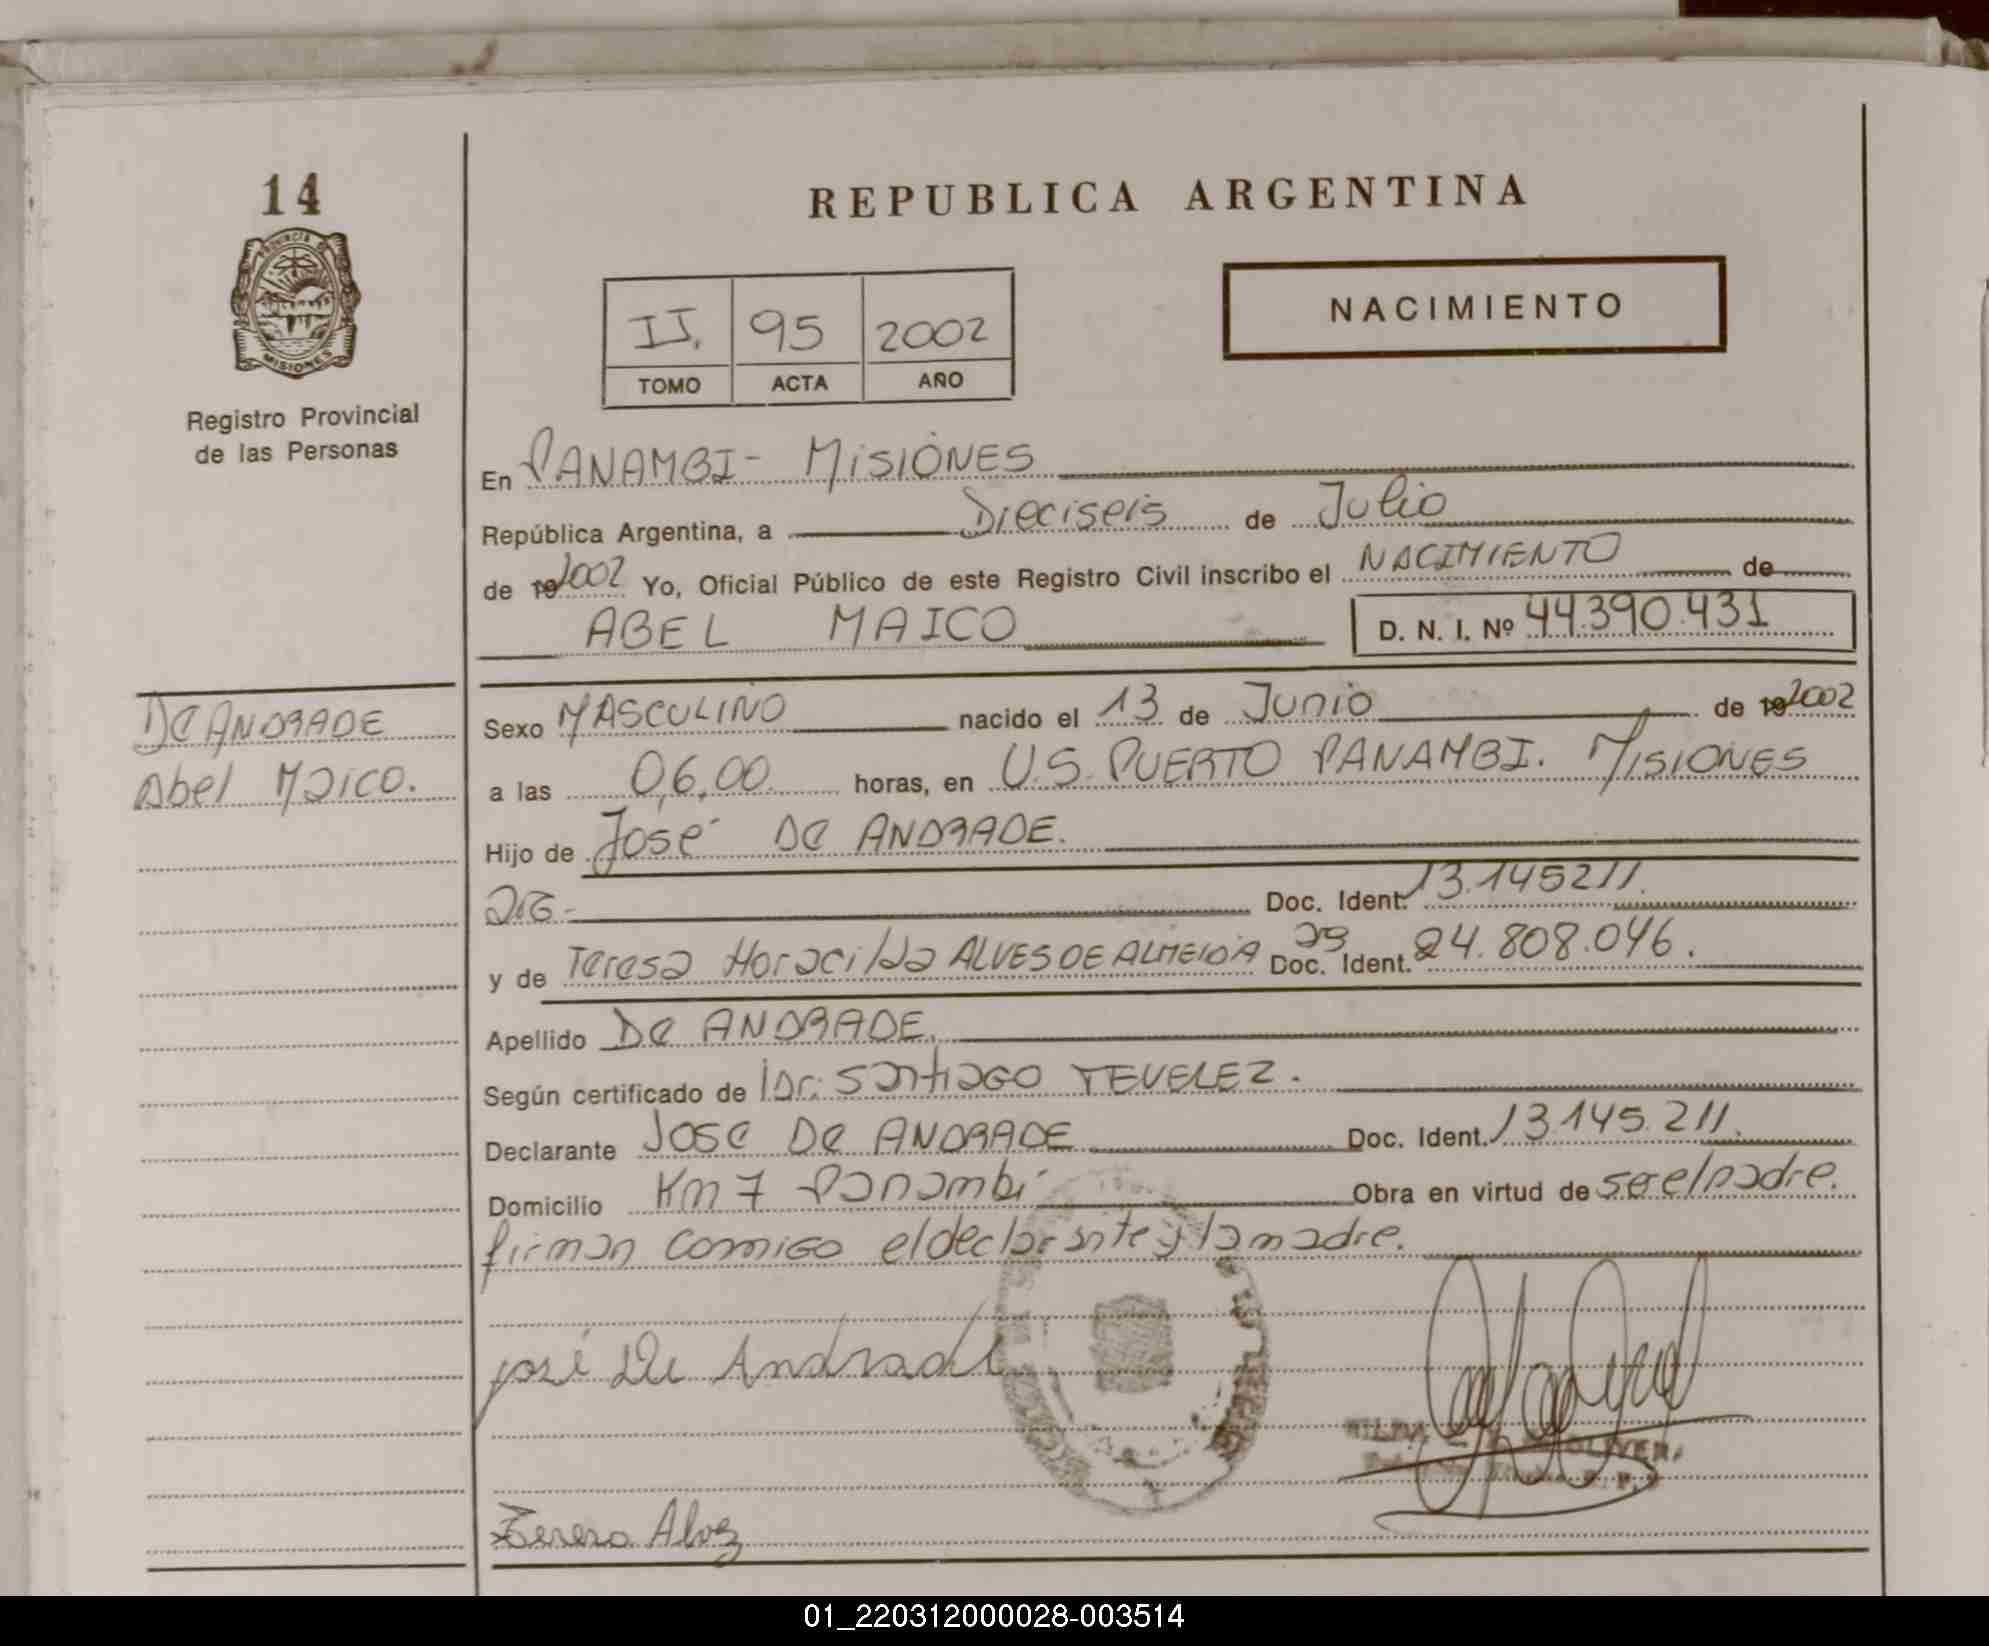 14
REPUBLICA ARGENTINA
PROVINCIA DE
MISIONES
Registro Provincial
de las Personas
II. 95 2002
TOMO ACTA AÑO
NACIMIENTO
En PANAMBI - MISIONES
República Argentina, a Dieciseis de Julio
de 192002 Yo, Oficial Público de este Registro Civil inscribo el NACIMIENTO de
ABEL MAICO D. N. I. Nº 44.390.431
DE ANDRADE
Abel Maico.
Sexo MASCULINO nacido el 13 de Junio de 192002
a las 06,00 horas, en U.S. PUERTO PANAMBI. MISIONES
Hijo de José DE ANDRADE.
Doc. Ident. 13.145211.
y de Teresa Horacilda ALVES DE ALMEIDA 29 Doc. Ident. 24.808.046.
Apellido DE ANDRADE.
Según certificado de Dr: Santiago TEVELEZ.
Declarante JOSE DE ANDRADE Doc. Ident. 13.145.211.
Domicilio Km 7 Panambi Obra en virtud de ser el padre.
firman conmigo el declarante y la madre.
José De Andrade
OLIVERA
Teresa Alvez
01_220312000028-003514